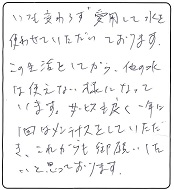 いつも変わらず愛用して水を
使わせていただいております。
この生活としてから、他の水
は使えない様になって
います。サービスも良く一年に
1回はメンテナンスをしていただ
き、これからも御願いした
いと思っております。